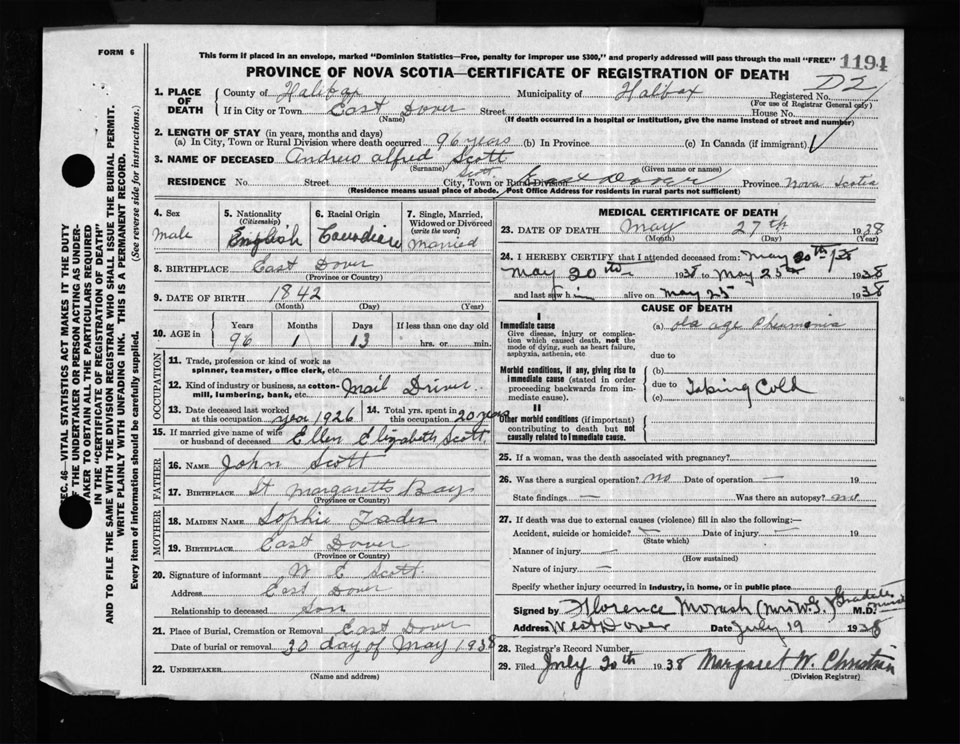 FORM 6
This form if placed in an envelope, marked "Dominion Statistics—Free, penalty for improper use $300," and properly addressed will pass through the mail "FREE"
1194
PROVINCE OF NOVA SCOTIA—CERTIFICATE OF REGISTRATION OF DEATH
1. PLACE OF DEATH
County of Halifax Municipality of Halifax Registered No. 72
(For use of Registrar General only)
If in City or Town East Dover Street House No.
(Name) (If death occurred in a hospital or institution, give the name instead of street and number)
2. LENGTH OF STAY (in years, months and days)
(a) In City, Town or Rural Division where death occurred 96 years (b) In Province (c) In Canada (if immigrant)
3. NAME OF DECEASED Andrew Alfred Scott
(Surname) Scott (Given name or names)
RESIDENCE No. Street City, Town or Rural Division East Dover Province Nova Scotia
(Residence means usual place of abode. Post Office Address for residents in rural parts not sufficient)
4. Sex Male
5. Nationality (Citizenship) English
6. Racial Origin
7. Single, Married, Widowed or Divorced (write the word) Married
8. BIRTHPLACE East Dover
(Province or Country)
9. DATE OF BIRTH 1842
(Month) (Day) (Year)
10. AGE in Years 96 Months 1 Days 13 If less than one day old hrs. or min.
OCCUPATION
11. Trade, profession or kind of work as spinner, teamster, office clerk, etc.
12. Kind of industry or business, as cotton-mill, lumbering, bank, etc. Mail Driver
13. Date deceased last worked at this occupation year 1926
14. Total yrs. spent in this occupation 20 years
15. If married give name of wife or husband of deceased Ellen Elizabeth Scott
FATHER
16. NAME John Scott
17. BIRTHPLACE St Margaretts Bay
(Province or Country)
MOTHER
18. MAIDEN NAME Sophie
19. BIRTHPLACE East Dover
(Province or Country)
20. Signature of informant W E Scott
Address East Dover
Relationship to deceased Son
21. Place of Burial, Cremation or Removal East Dover
Date of burial or removal 30 day of May 1938
22. UNDERTAKER
(Name and address)
MEDICAL CERTIFICATE OF DEATH
23. DATE OF DEATH May 27th 1938
(Month) (Day) (Year)
24. I HEREBY CERTIFY that I attended deceased from: May 20th/38
May 20th 1938 to May 25th 1938
and last saw him alive on May 25 1938
CAUSE OF DEATH
I
Immediate cause
Give disease, injury or complication which caused death, not the mode of dying, such as heart failure, asphyxia, asthenia, etc
(a) old age Pneumonia
due to
Morbid conditions, if any, giving rise to immediate cause (stated in order proceeding backwards from immediate cause).
(b)
due to Taking Cold
(c)
II
Other morbid conditions (if important) contributing to death but not causally related to immediate cause.
25. If a woman, was the death associated with pregnancy?
26. Was there a surgical operation? no Date of operation — 19
State findings — Was there an autopsy? no
27. If death was due to external causes (violence) fill in also the following:—
Accident, suicide or homicide? — Date of injury — 19
(State which)
Manner of injury —
(How sustained)
Nature of injury —
Specify whether injury occurred in industry, in home, or in public place
Signed by Florence Morash (Mrs W.G.) Graduate Nurse M.D.
Address West Dover Date July 19 1938
28. Registrar's Record Number
29. Filed July 20th 1938 Margaret W. Christian
(Division Registrar)
SEC. 46—VITAL STATISTICS ACT MAKES IT THE DUTY
OF THE UNDERTAKER OR PERSON ACTING AS UNDER-
TAKER TO OBTAIN ALL THE PARTICULARS REQUIRED
IN THE "CERTIFICATE OF REGISTRATION OF DEATH"
AND TO FILE THE SAME WITH THE DIVISION REGISTRAR WHO SHALL ISSUE THE BURIAL PERMIT.
WRITE PLAINLY WITH UNFADING INK. THIS IS A PERMANENT RECORD.
Every item of information should be carefully supplied. (See reverse side for instructions.)